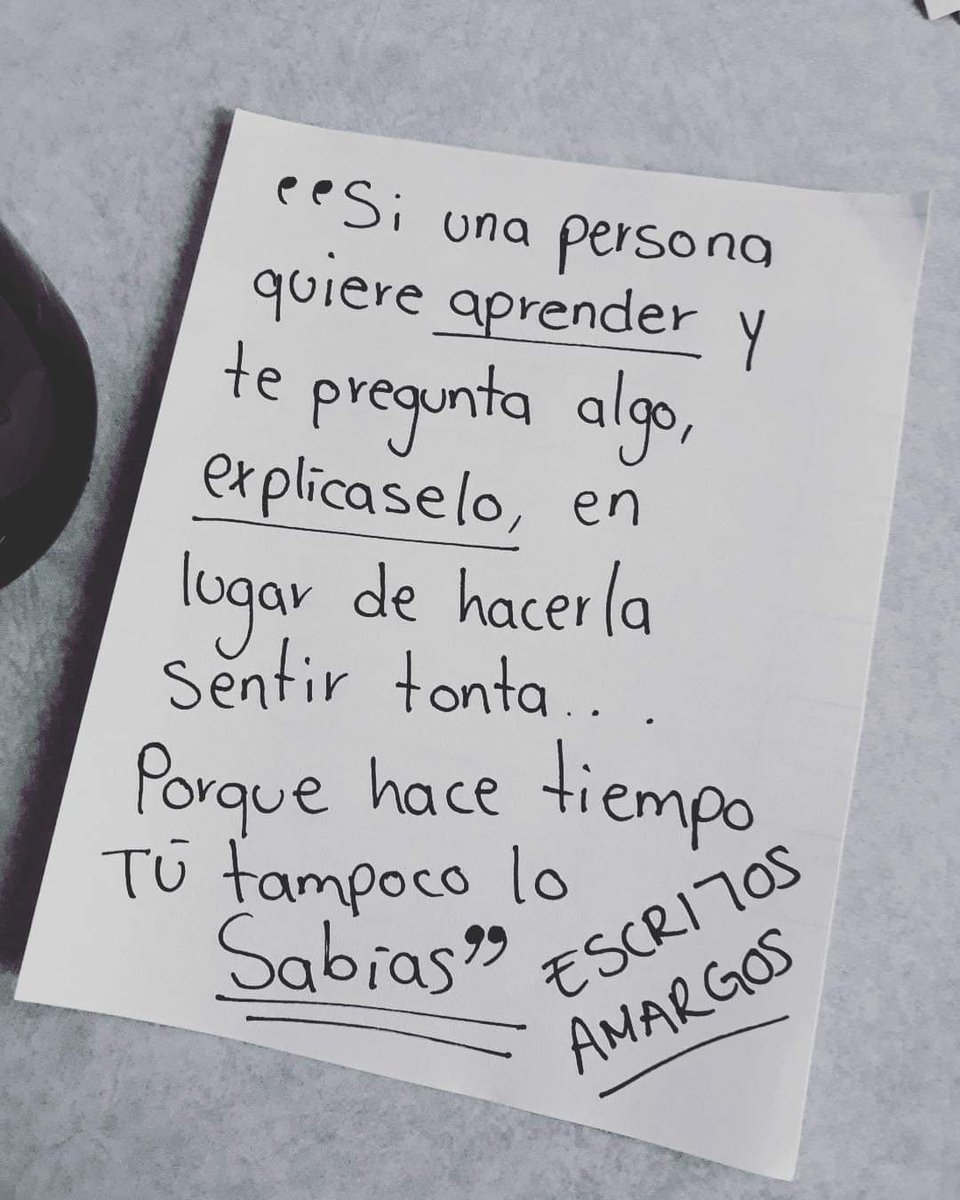 “Si una persona
quiere aprender y
te pregunta algo,
explícaselo, en
lugar de hacerla
sentir tonta...
Porque hace tiempo
TÚ tampoco lo
Sabías”
ESCRITOS
AMARGOS